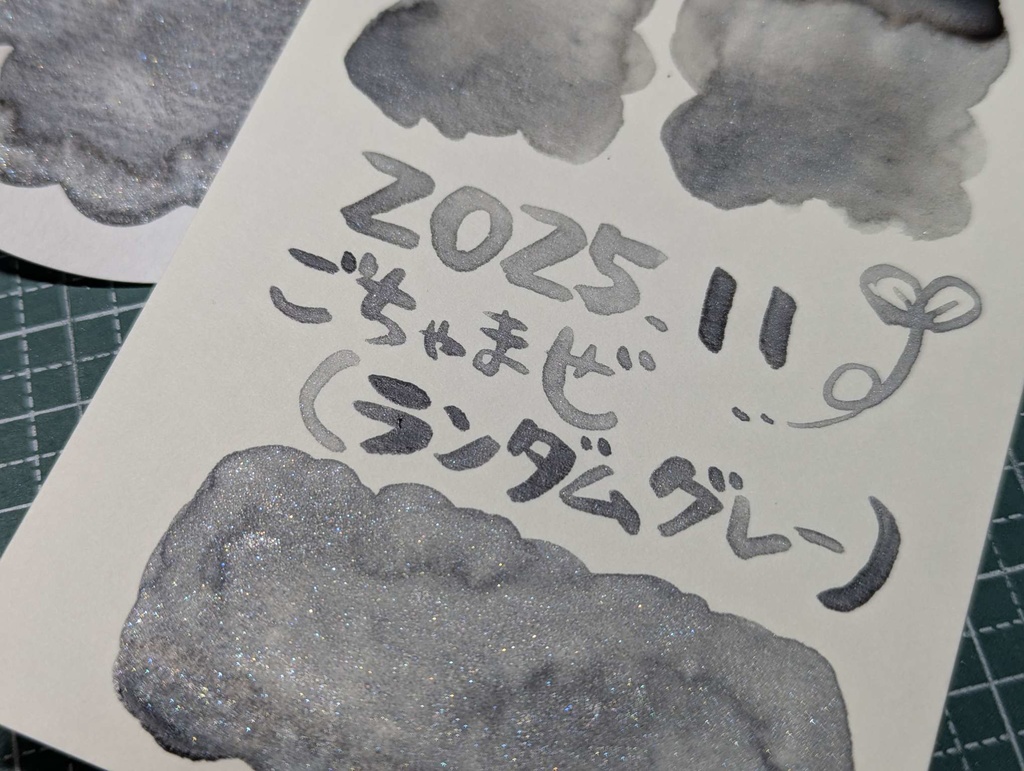 2025.11
ごちゃまぜ
(ランダムグレー)